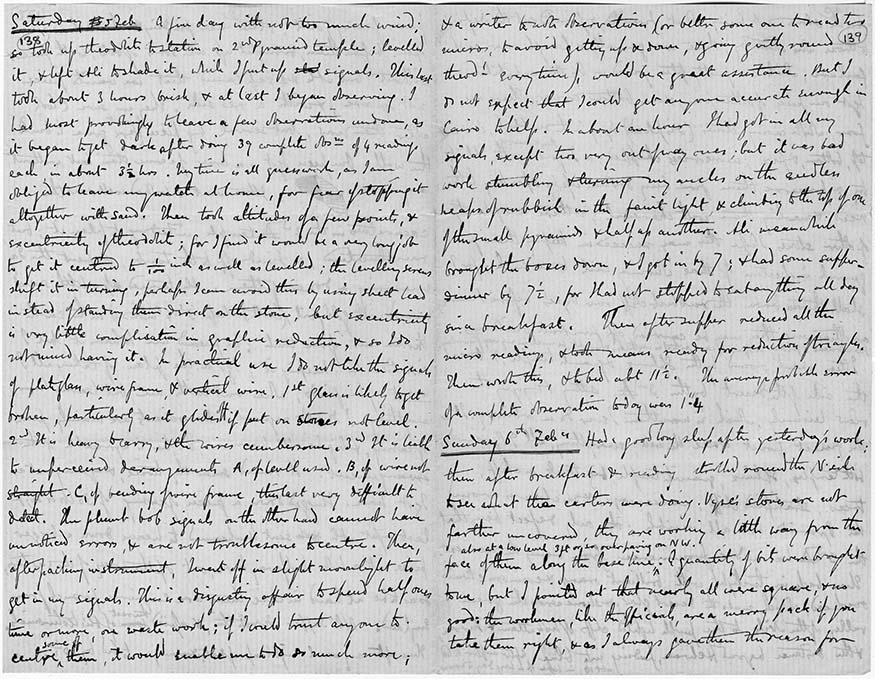 Saturday 5 Feb A fine day with not too much wind;
138
so took up theodolite to station on 2nd Pyramid temple; levelled
it, & left Ali to shade it, while I put up signals. This last
took about 3 hours brisk, & at last I began observing. I
had most provokingly to leave a few observations undone, as
it began to get dark after doing 39 complete obsns of 4 readings
each, in about 3½ hrs. My time is all guesswork, as I am
obliged to leave my watch at home, for fear of stopping it
altogether with sand. Then took altitudes of a few points, &
excentricity of theodolite; for I find it would be a very long job
to get it centred to 1/100 inch as well as levelled; the levelling screws
shift it in turning, perhaps I can avoid this by using sheet lead
instead of standing them direct on the stone, but excentricity
is very little complication in graphic reduction, & so I do
not mind having it. In practical use I do not like the signals
of plate glass, wire frame, & vertical wire. 1st glass is likely to get
broken, particularly as it glides off if put on stones not level.
2nd It is heavy to carry, & the wires cumbersome. 3rd It is liable
to unperceived derangements A, of level used. B, of wire not
straight. C, of bending of wire frame, this last very difficult to
detect. The plumb bob signals on the other hand cannot have
unnoticed errors, & are not troublesome to centre. Then,
after packing instrument, I went off in slight moonlight to
get in my signals. This is a disgusting affair to spend half ones
time or more, on waste work; if I could trust anyone to
centre some of them, it would enable me to do so much more;
& a writer to note observations (or better some one to read the
139
micros, to avoid getting up & down, & going gently round
theodt every time), would be a great assistance. But I
do not expect that I could get anyone accurate enough in
Cairo to help. In about an hour I had got in all my
signals except two very out of way ones; but it was bad
work stumbling & turning my ancles on the endless
heaps of rubbish in the faint light, & climbing to the top of one
of the small pyramids & half up another. Ali meanwhile
brought the boxes down, & I got in by 7; & had some supper-
dinner by 7½, for I had not stopped to eat anything all day
since breakfast. Then after supper reduced all the
micro readings, & took means ready for reduction of triangles.
Then wrote this, & to bed abt 11½. The average probable error
of a complete observation today was 1".4
Sunday 6th Feby Had a good long sleep after yesterdays work;
then after breakfast & reading strolled round the N. side
to see what the carters were doing. Vyse's stones are not
farther uncovered, they are working a little way from the
also at a low level 3ft or so over paving on N.W.
face of them along the base line; A quantity of bits were brought
to me, but I pointed out that nearly all were square, & no
good: the workmen, like the officials, are a merry pack if you
take them right, & as I always gave them the reason for